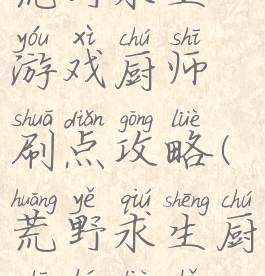 yóu xì chú shī
游戏厨师
shuā diǎn gōng lüè
刷点攻略(
huāng yě qiú shēng chú
荒野求生厨